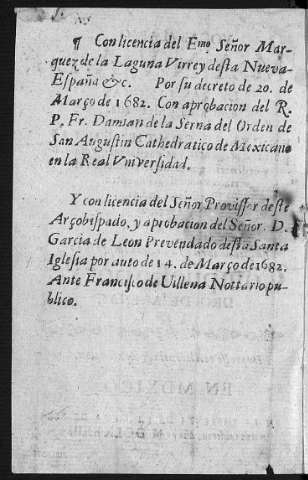 ¶ Con licencia del Emo Señor Mar-
quez de la Laguna Virrey desta Nueva-
España &c. Por su decreto de 20. de
Março de 1682. Con aprobacion del R.
P. Fr. Damian de la Serna del Orden de
San Augustin Cathedratico de Mexicano
en la Real Vniversidad.
Y con licencia del Señor Provissor deste
Arçobispado, y aprobacion del Señor. D.
Garcia de Leon Prevendado desta Santa
Iglesia por auto de 14. de Março de 1682.
Ante Francisco de Uillena Nottario pu-
blico.